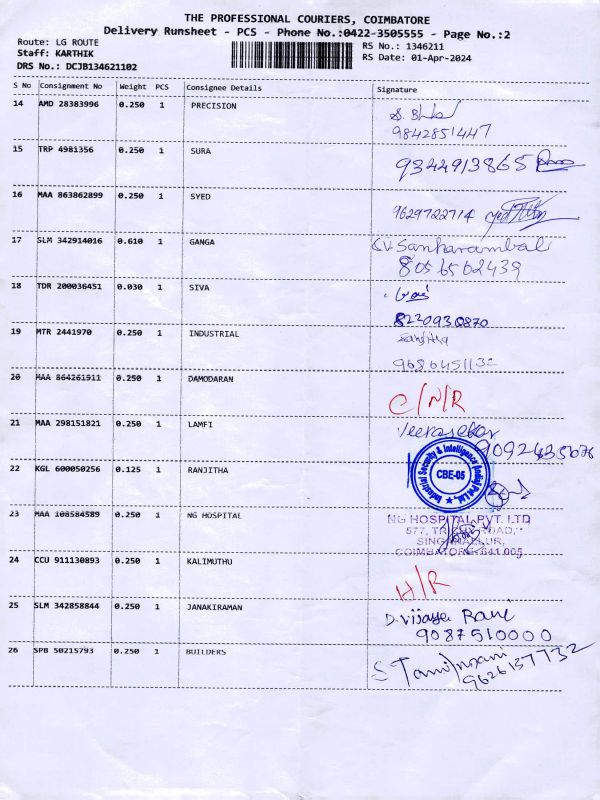 THE PROFESSIONAL COURIERS, COIMBATORE
Delivery Runsheet - PCS - Phone No.:0422-3505555 - Page No.:2
Route: LG ROUTE
RS No.: 1346211
Staff: KARTHIK
RS Date: 01-Apr-2024
DRS No.: DCJB134621102
S No Consignment No Weight PCS Consignee Details Signature
14 AMD 28383996 0.250 1 PRECISION
9842851447
15 TRP 4981356 0.250 1 SURA
9344913865
16 MAA 863862899 0.250 1 SYED
9629722714
17 SLM 342914016 0.610 1 GANGA
K.V. Sankarambal
8056502439
18 TDR 200036451 0.030 1 SIVA
8220930870
19 MTR 2441970 0.250 1 INDUSTRIAL
9686451132
20 MAA 864261911 0.250 1 DAMODARAN
C/N/R
21 MAA 298151821 0.250 1 LAMFI
Veerasekar
9092435076
22 KGL 600050256 0.125 1 RANJITHA
Industrial Security & Intelligence (India) Pvt Ltd.
CBE-05
23 MAA 108584589 0.250 1 NG HOSPITAL
NG HOSPITAL PVT. LTD
577, ROAD,
COIMBATORE-641 005
24 CCU 911130893 0.250 1 KALIMUTHU
H/R
25 SLM 342858844 0.250 1 JANAKIRAMAN
D. Vijaya Rani
9087510000
26 SPB 50215793 0.250 1 BUILDERS
9626137732